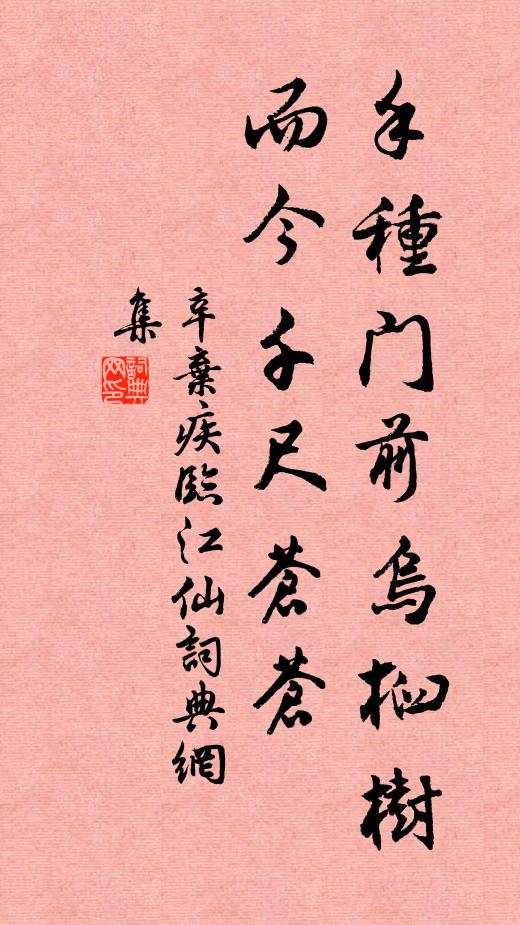 手種門前烏桕樹
而今千尺蒼蒼
辛棄疾臨江仙詞典網
集
詞典
网印